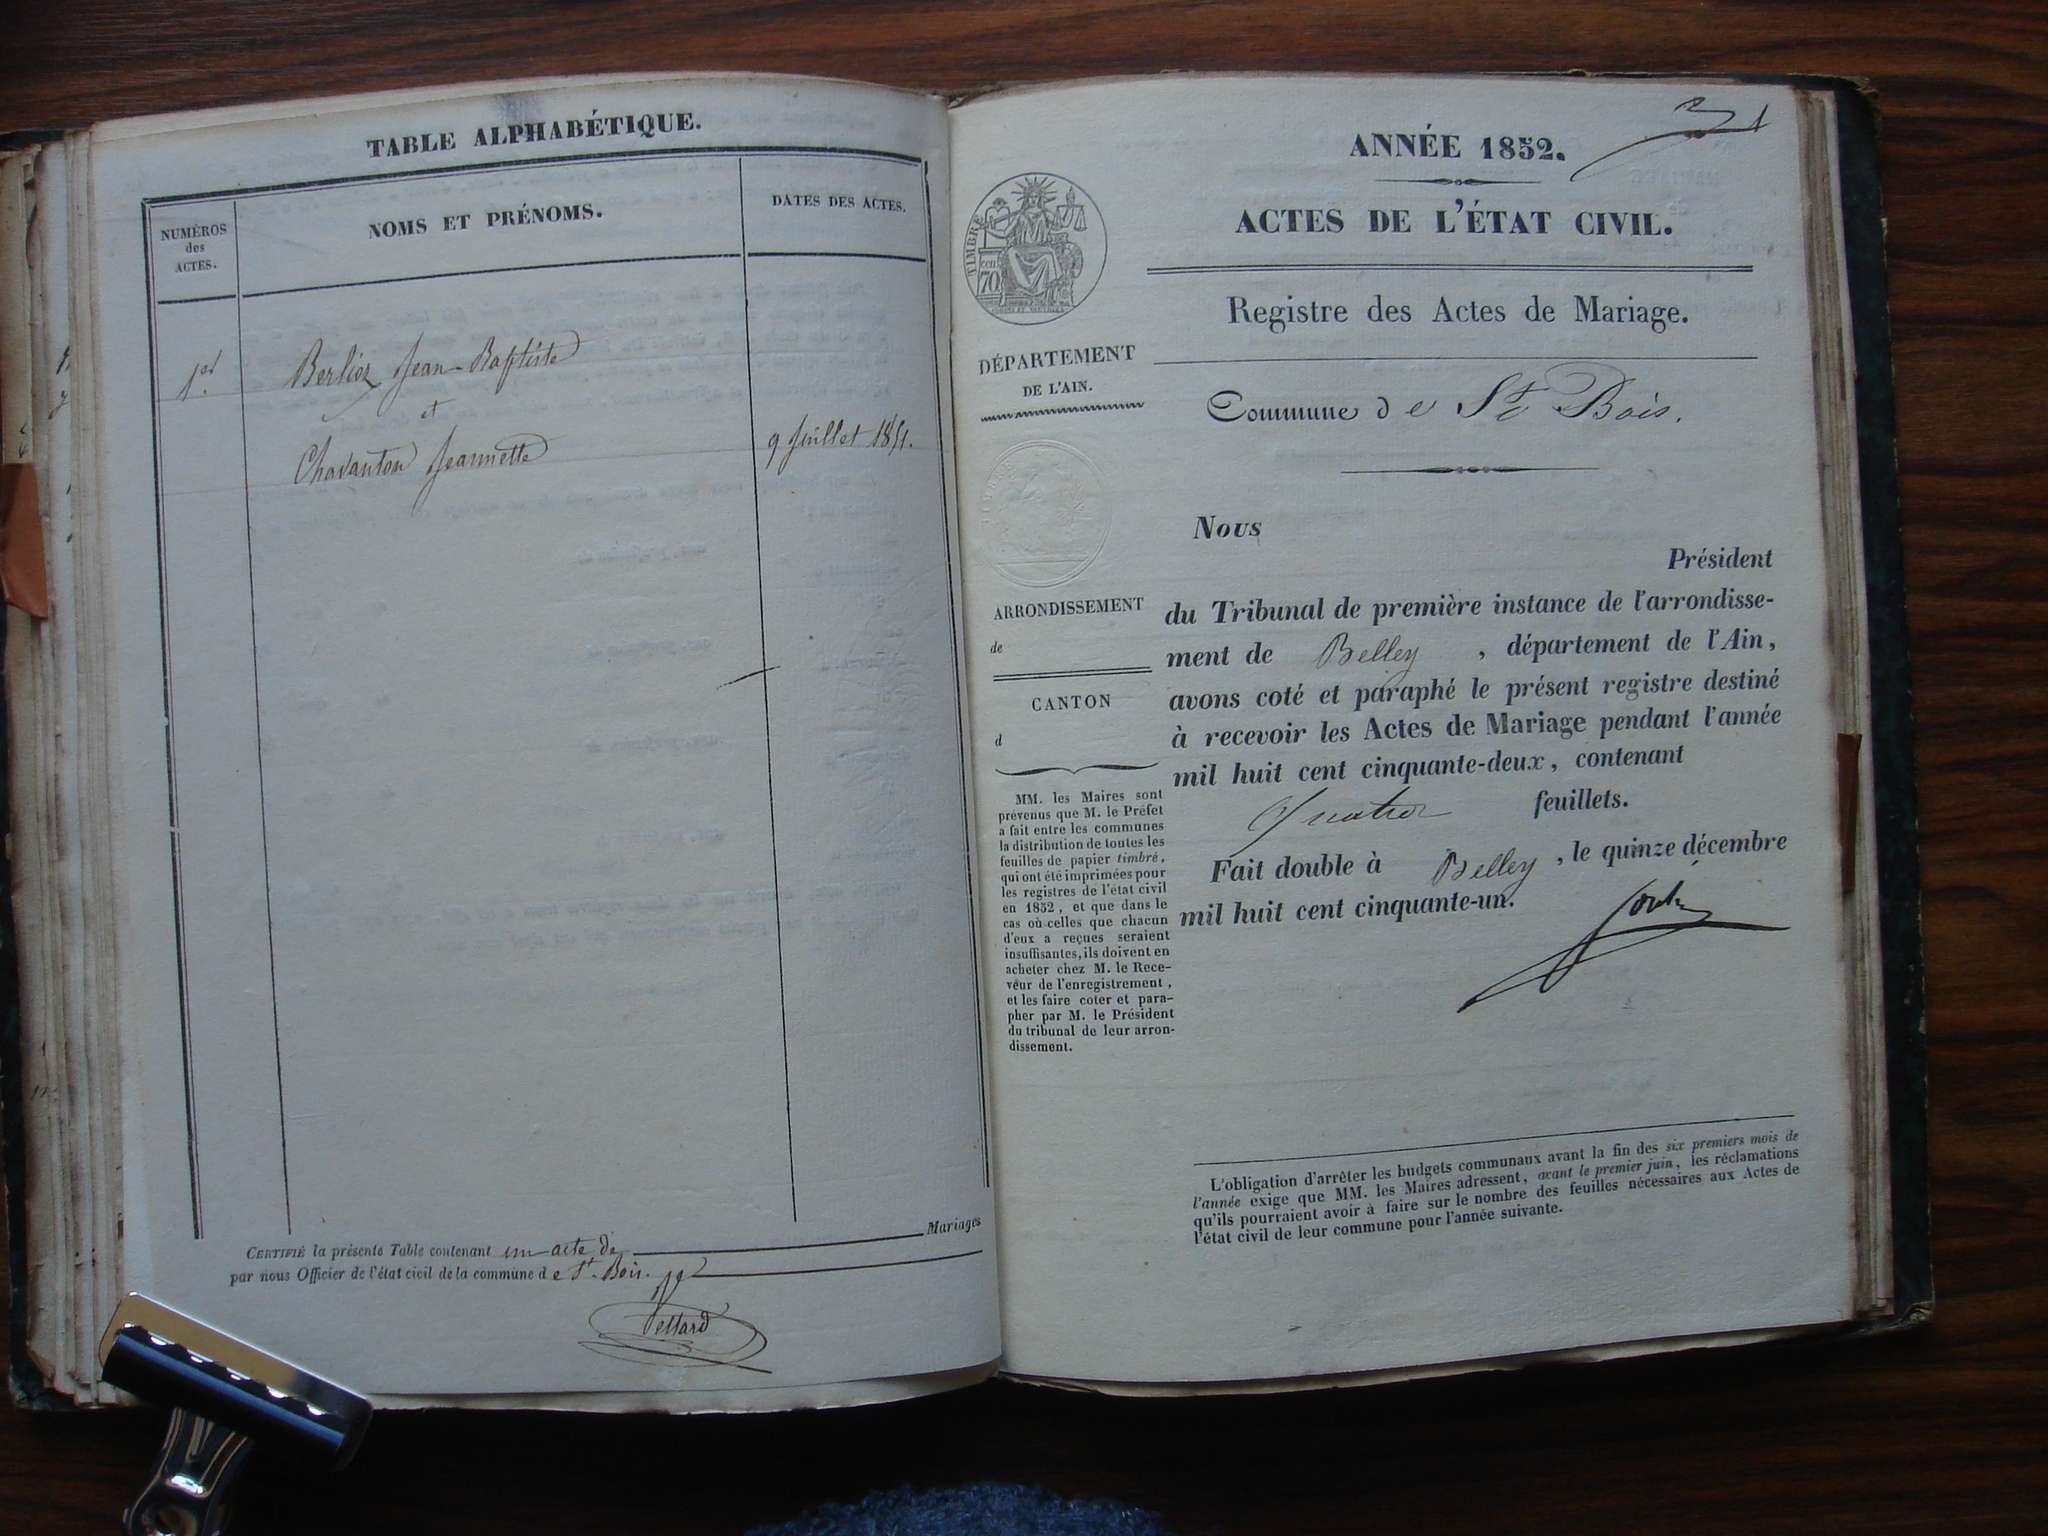 TABLE ALPHABÉTIQUE.
NUMÉROS
des
ACTES.
NOMS ET PRÉNOMS.
DATES DES ACTES.
1er
Berlioz Jean-Baptiste
et
Chavanton Jeannette
9 Juillet 1851.
CERTIFIÉ la présente Table contenant un acte de Mariages
par nous Officier de l'état civil de la commune de St. Bois.
ANNÉE 1852.
1
ACTES DE L'ÉTAT CIVIL.
Registre des Actes de Mariage.
TIMBRE
cen.
70
DÉPARTEMENT
DE L'AIN.
Commune de St Bois.
ARRONDISSEMENT
de
CANTON
d
MM. les Maires sont
prévenus que M. le Préfet
a fait entre les communes
la distribution de toutes les
feuilles de papier timbré,
qui ont été imprimées pour
les registres de l'état civil
en 1852, et que dans le
cas où celles que chacun
d'eux a reçues seraient
insuffisantes, ils doivent en
acheter chez M. le Rece-
veur de l'enregistrement,
et les faire coter et para-
pher par M. le Président
du tribunal de leur arron-
dissement.
Nous
Président
du Tribunal de première instance de l'arrondisse-
ment de Belley, département de l'Ain,
avons coté et paraphé le présent registre destiné
à recevoir les Actes de Mariage pendant l'année
mil huit cent cinquante-deux, contenant
Quatre feuillets.
Fait double à Belley, le quinze décembre
mil huit cent cinquante-un.
L'obligation d'arrêter les budgets communaux avant la fin des six premiers mois de
l'année exige que MM. les Maires adressent, avant le premier juin, les réclamations
qu'ils pourraient avoir à faire sur le nombre des feuilles nécessaires aux Actes de
l'état civil de leur commune pour l'année suivante.